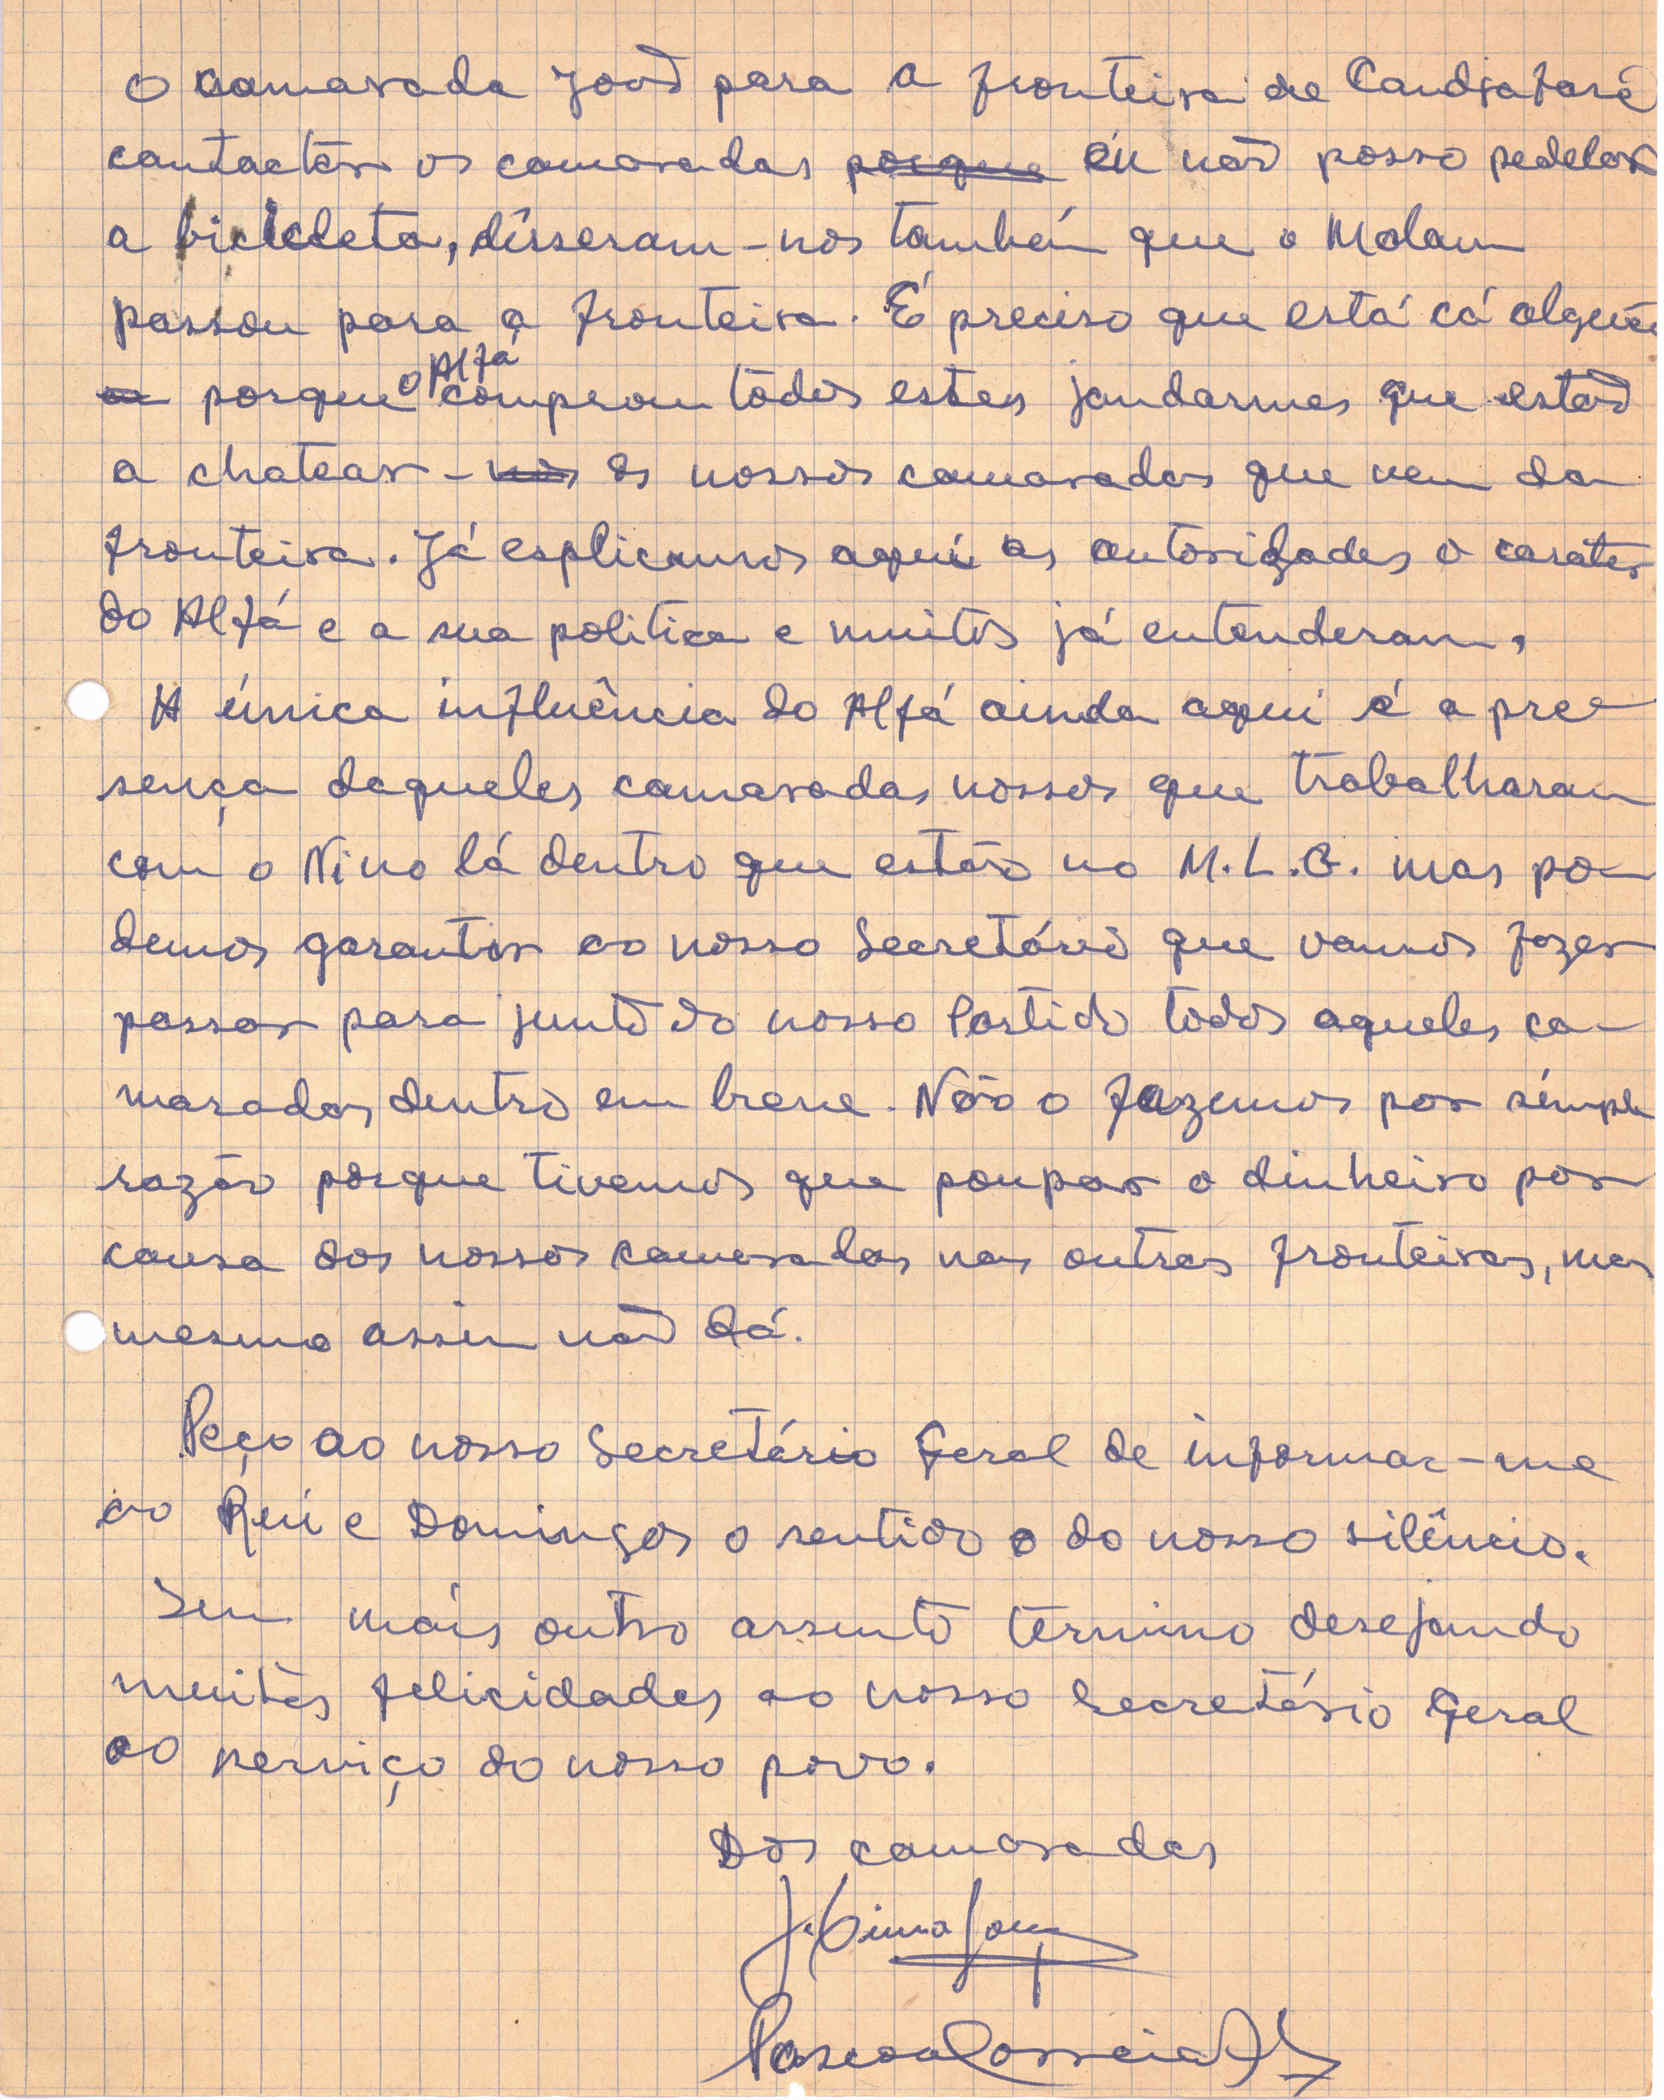 o camarada João para a fronteira de Candjafará
contactar os camaradas porque eu não posso pedelar
a bicicleta, disseram-nos também que o Malam
passou para a fronteira. É preciso que está cá alguém
porque o Alfá comprou todos estes jandarmes que estão
a chatear-nos os nossos camaradas que vem da
fronteira. Já esplicamos aqui as autorizades o caráter
do Alfá e a sua politica e muitos já entenderam.
A única influência do Alfá ainda aqui é a pre-
sença daqueles camaradas nossos que trabalharam
com o Nino lá dentro que estão no M.L.G. mas po-
demos garantir ao nosso Secretário que vamos fazer
passar para junto do nosso Partido todos aqueles ca-
maradas dentro em breve. Não o fazemos por simples
razão porque tivemos que poupar o dinheiro por
causa dos nossos camaradas nas outras fronteiras, mas
mesmo assim não dá.
Peço ao nosso Secretário Geral de informar-me
ao Rui e Domingos o sentido do nosso silêncio.
Sem mais outro assunto termino desejando
muitas felicidades ao nosso Secretário Geral
ao serviço do nosso povo.
Dos camaradas
Pascoal Correia